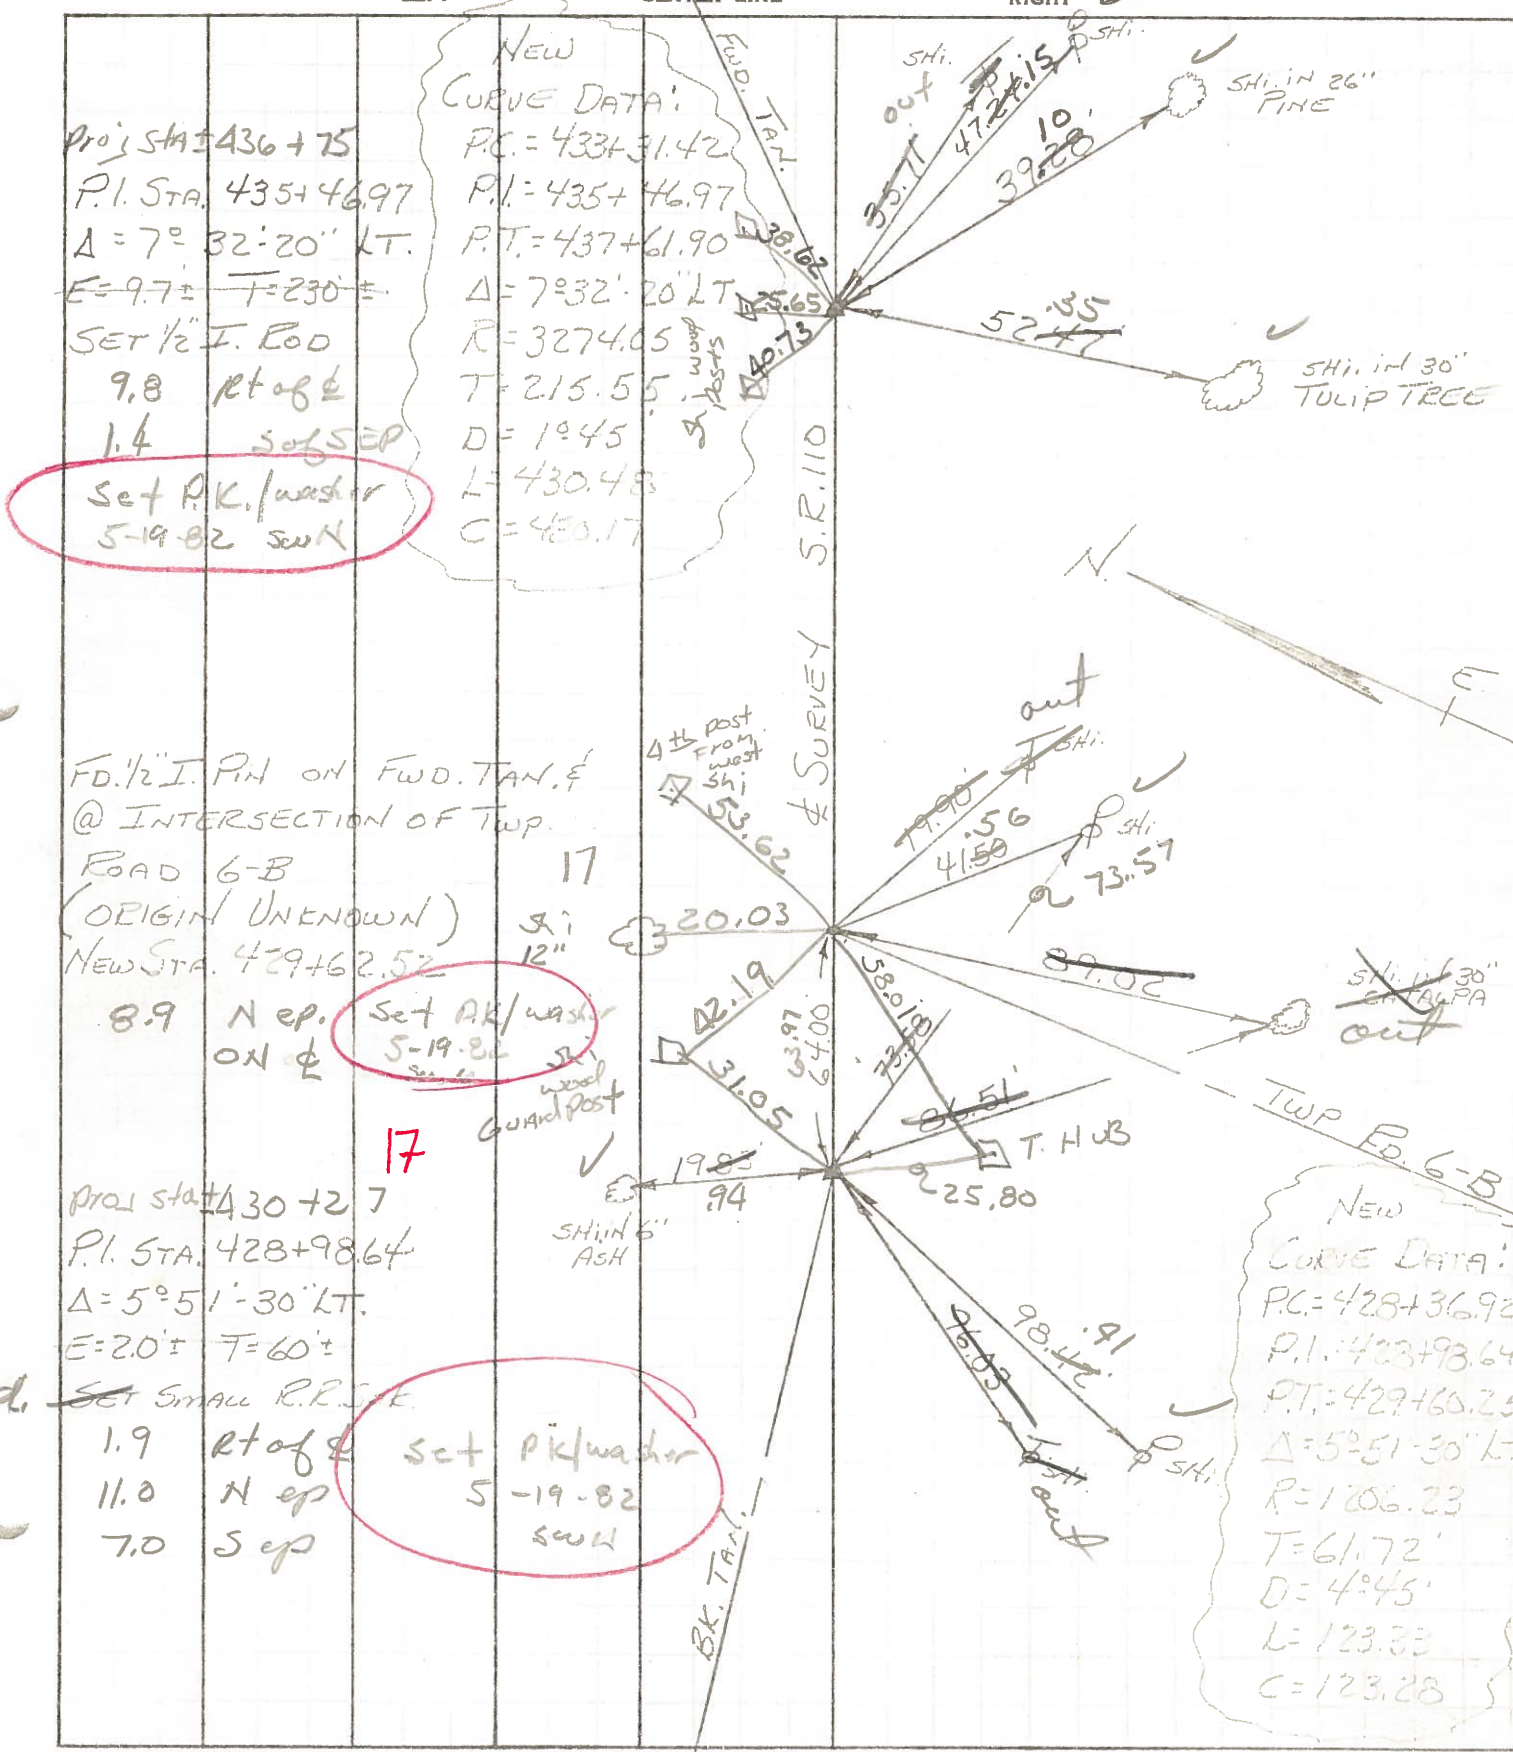 CENTER LINE
RIGHT
Proj sta ± 436 + 75
P.I. STA. 435+46.97
Δ = 7° 32'-20" LT.
E = 9.7± T=230'±
SET 1/2" I. ROD
9.8 Rt of ℄
1.4 S of SEP
Set P.K./washer
5-19-82
NEW
CURVE DATA:
P.C. = 433+31.42
P.I. = 435+46.97
P.T. = 437+61.90
Δ = 7°32'-20" LT
R = 3274.05
T = 215.55
D = 1°45'
L = 430.48
FWD. TAN.
38.62
25.65
40.73
shi wood
posts
SHi.
out
35.71
47.24.15
SHi.
39.28
10
SHi. IN 26"
PINE
52.47
.35
SHi. IN 30"
TULIP TREE
℄ SURVEY S.R. 110
N.
E.
FD. 1/2" I. PIN ON FWD. TAN. &
@ INTERSECTION OF TWP.
ROAD 6-B
(ORIGIN UNKNOWN)
NEW STA. 429+62.52
8.9 N ep.
ON ℄
Set P.K/washer
5-19-82
17
shi
12"
4th post
from
west
shi
53.62
20.03
42.19
31.05
shi
wood
Guard Post
out
SHi.
79.90
.56
41.50
SHi.
73.57
89.02
SHi. IN 30"
CATALPA
out
58.01
63.97
64.00
86.51'
T. HUB
25.80
TWP RD. 6-B
17
proj sta ± 430 + 27
P.I. STA. 428+98.64
Δ = 5°51'-30" LT.
E = 2.0'± T = 60'±
SET SMALL R.R. SPK.
1.9 Rt of ℄
11.0 N ep
7.0 S ep
Set PK/washer
5-19-82
19.83
.94
SHi. IN 6"
ASH
96.03
98.42
.91
SHi.
out
SHi.
BK. TAN.
NEW
CURVE DATA:
P.C. = 428+36.92
P.I. = 428+98.64
P.T. = 429+60.25
Δ = 5°51'-30" Lt.
R = 1206.23
T = 61.72'
D = 4°45'
L = 123.33
C = 123.28